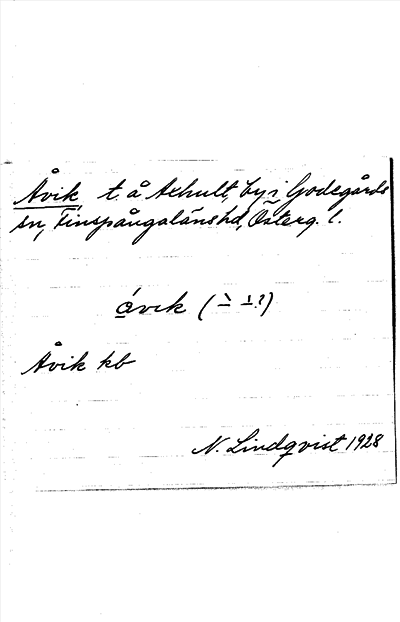 Åvik t. å Axhult, by i Godegårds
sn, Finspångaläns hd, Österg. l.
åvik (
Åvik kb
N. Lindqvist 1928